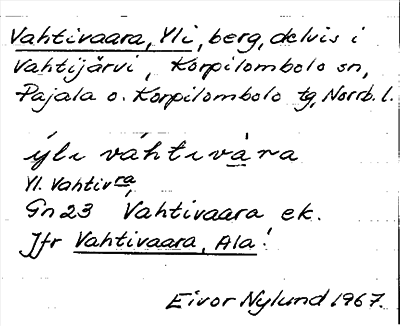 Vahtivaara, Yli, berg, delvis i
Vahtijärvi, Korpilombolo sn,
Pajala o. Korpilombolo tg, Norrb. l.
ýli váhtivàra
Yl. Vahtivra
Gn 23 Vahtivaara ek.
Jfr Vahtivaara, Ala!
Eivor Nylund 1967.